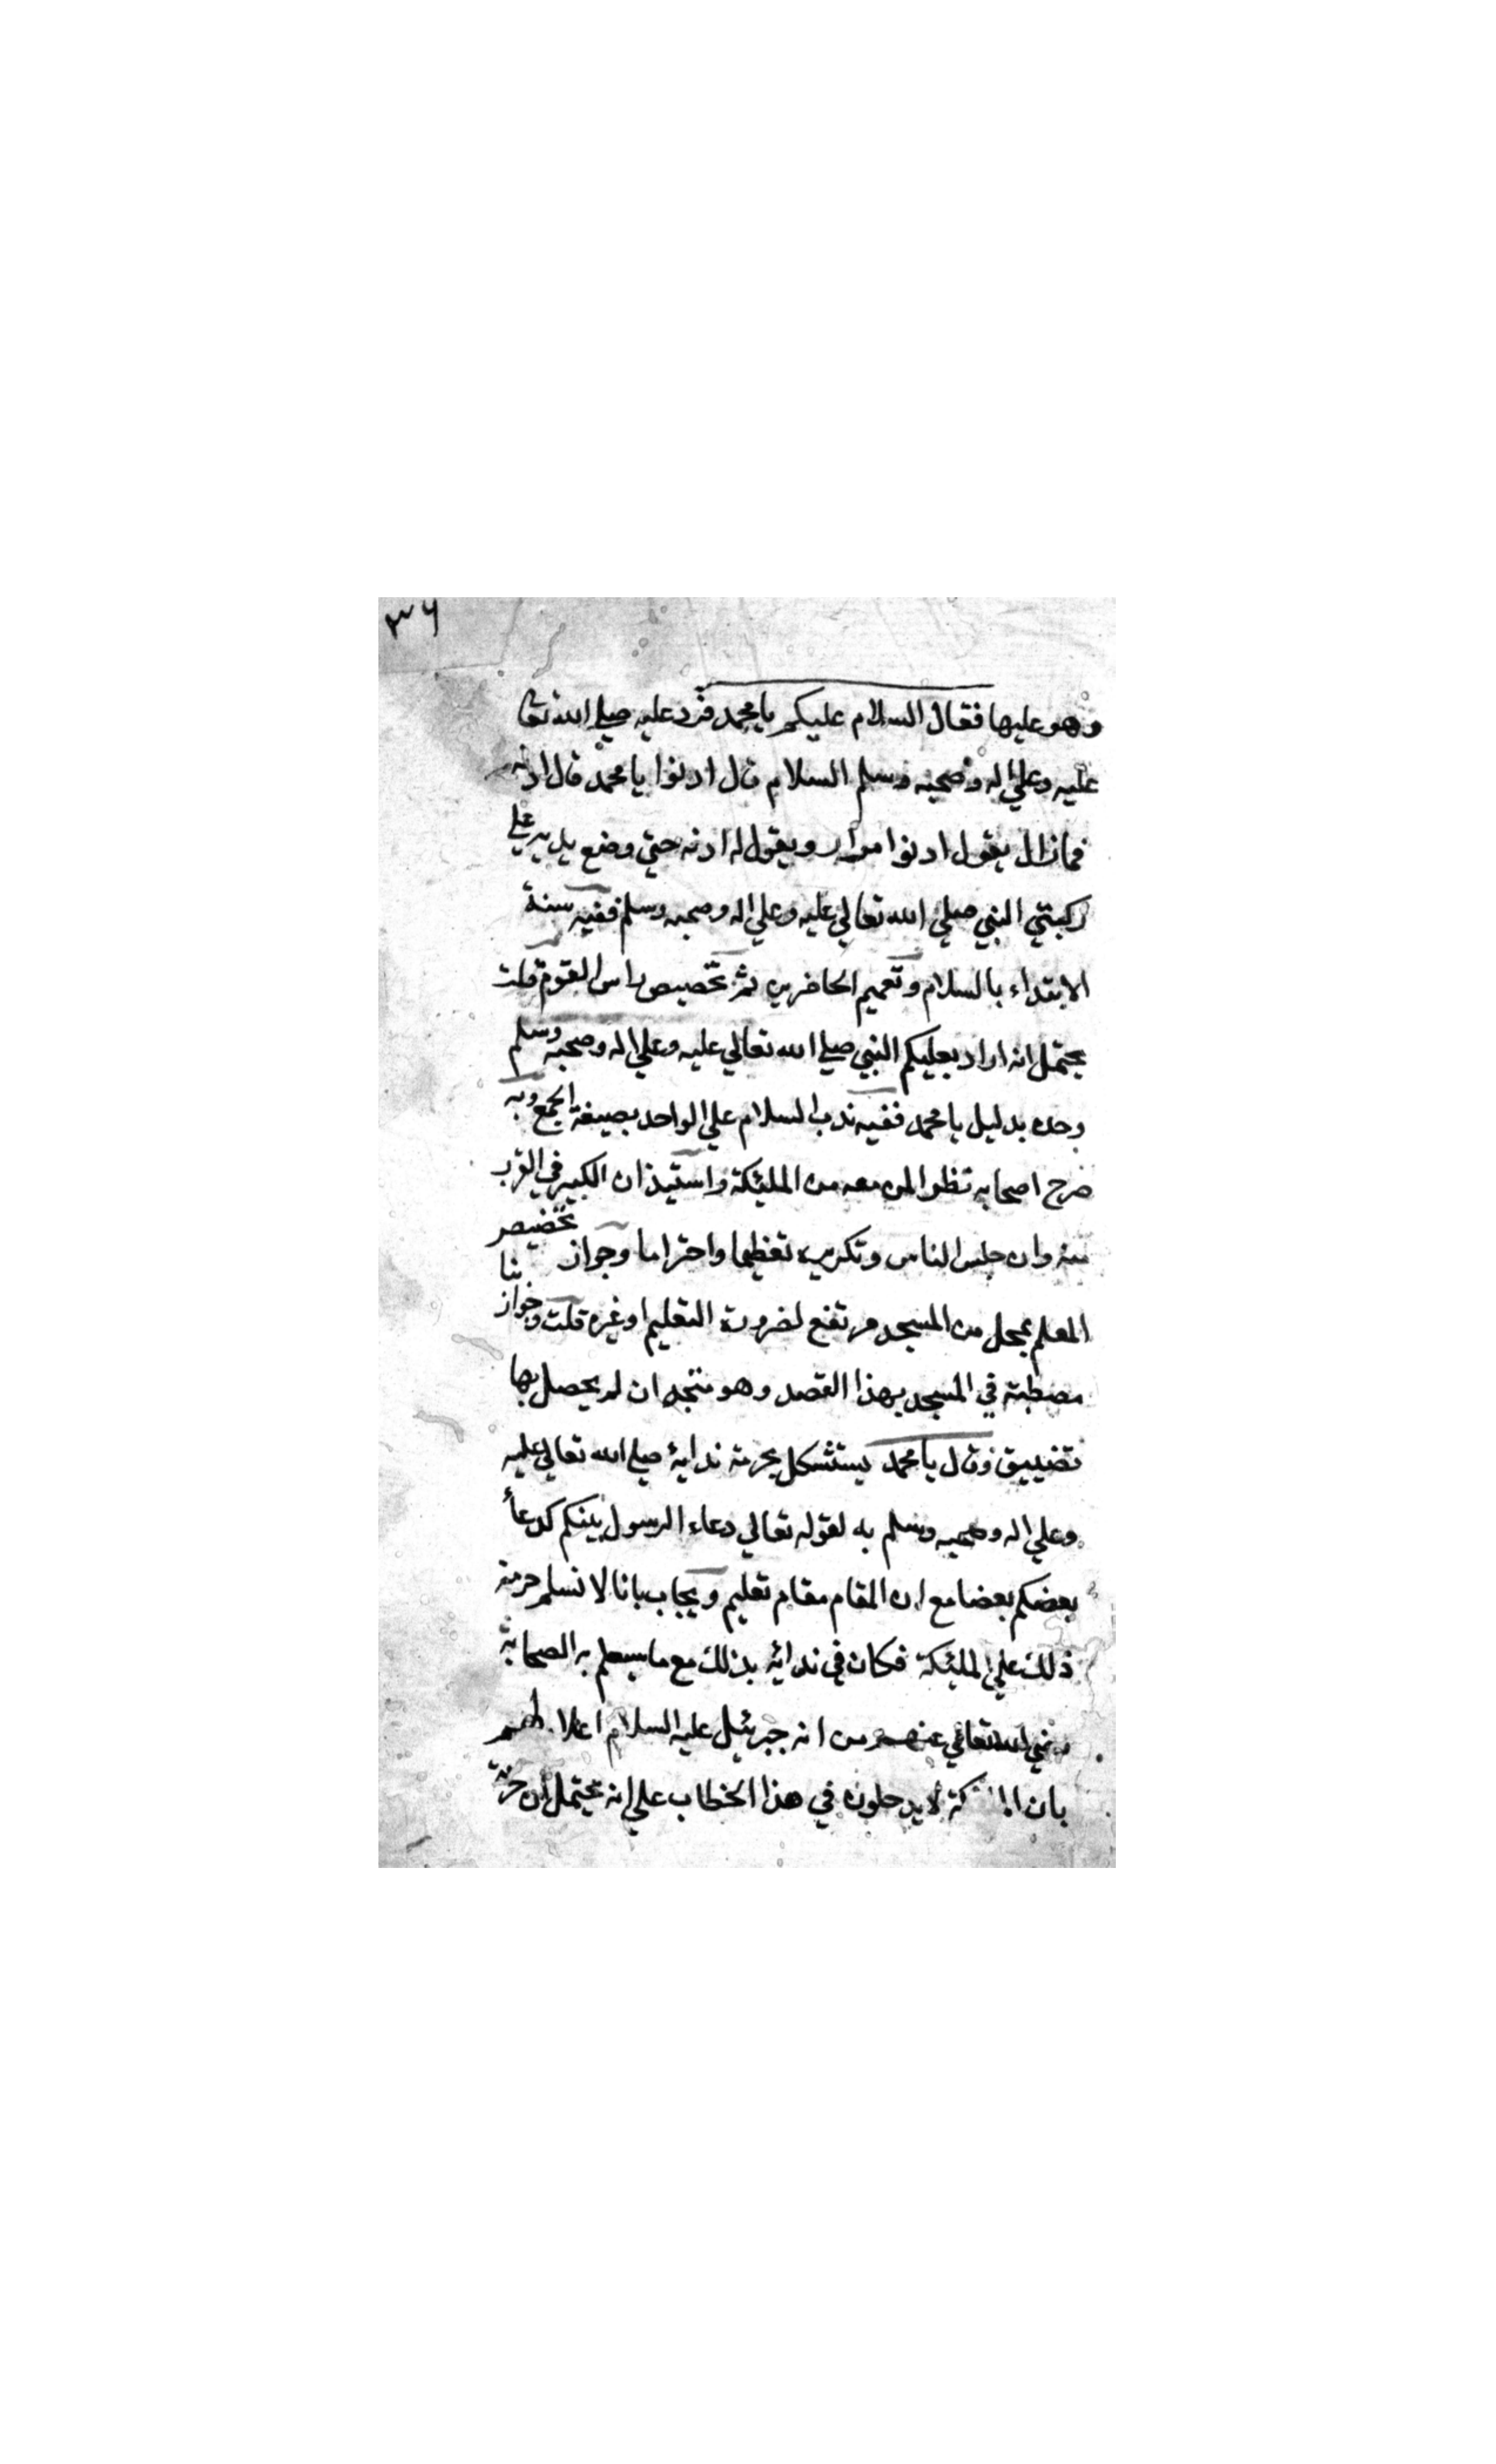 ٣٦
وهو عليها فقال السلام عليكم يا محمد فرد عليه صلي الله تعا
عليه وعلي اله وصحبه وسلم السلام قال ادنوا يا محمد قال ادنه
فمازال يقول ادنوا مرارا ويقول له ادنه حتي وضع يديه علي
ركبتي النبي صلي الله تعالي عليه وعلي اله وصحبه وسلم ففيه سنة
الابتداء بالسلام وتعميم الحاضرين ثم تخصيص راس القوم قلت
يحتمل انه اراد بعليكم النبي صلي الله تعالي عليه وعلي اله وصحبه وسلم
وحده بدليل يا محمد ففيه ندب السلام علي الواحد بصيغة الجمع وبه
صرح اصحابه نظرا لمن معه من المليكة واستيذان الكبير في القرب
منه وان جلس الناس وتكريره تعظيما واحتراما وجواز تخصيص
المعلم بمحل من المسجد مرتفع لضرورة التعليم او غيره قلت وجواز بنا
مصطبة في المسجد بهذا القصد وهو متجه ان لم يحصل بها
تضييق وقال يا محمد يستشكل بحرمة ندايه صلي الله تعالي عليه
وعلي اله وصحبه وسلم به لقوله تعالي دعاء الرسول بينكم كدعاء
بعضكم بعضا مع ان المقام مقام تعليم ويجاب بانا لا نسلم حرمة
ذلك علي المليكة فكان في ندائه بذلك مع ما سيعلم به الصحابة
رضي الله تعالي عنهم من انه جبرئيل عليه السلام اعلا لهم
بان لا يدخلون في هذا الخطاب علي انه يحتمل ان حرمة